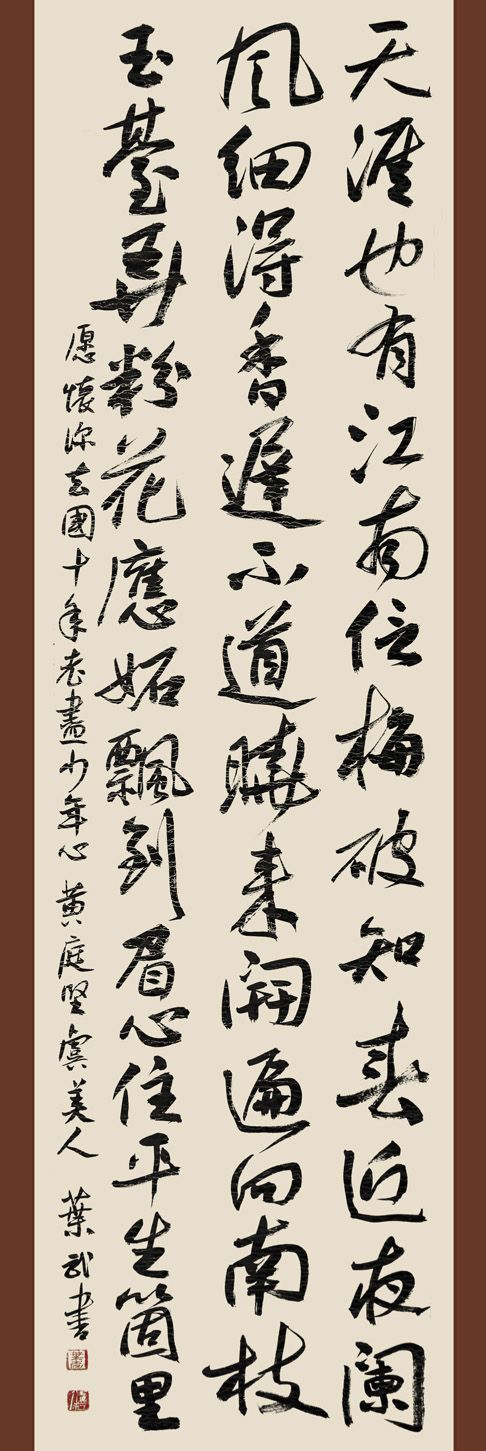 天涯也有江南信梅破知春近夜阑
风细得香遲不道曉来開遍向南枝
玉臺弄粉花應妬飄到眉心住平生箇里
愿懷深去國十年老盡少年心 黄庭堅虞美人 葉武書